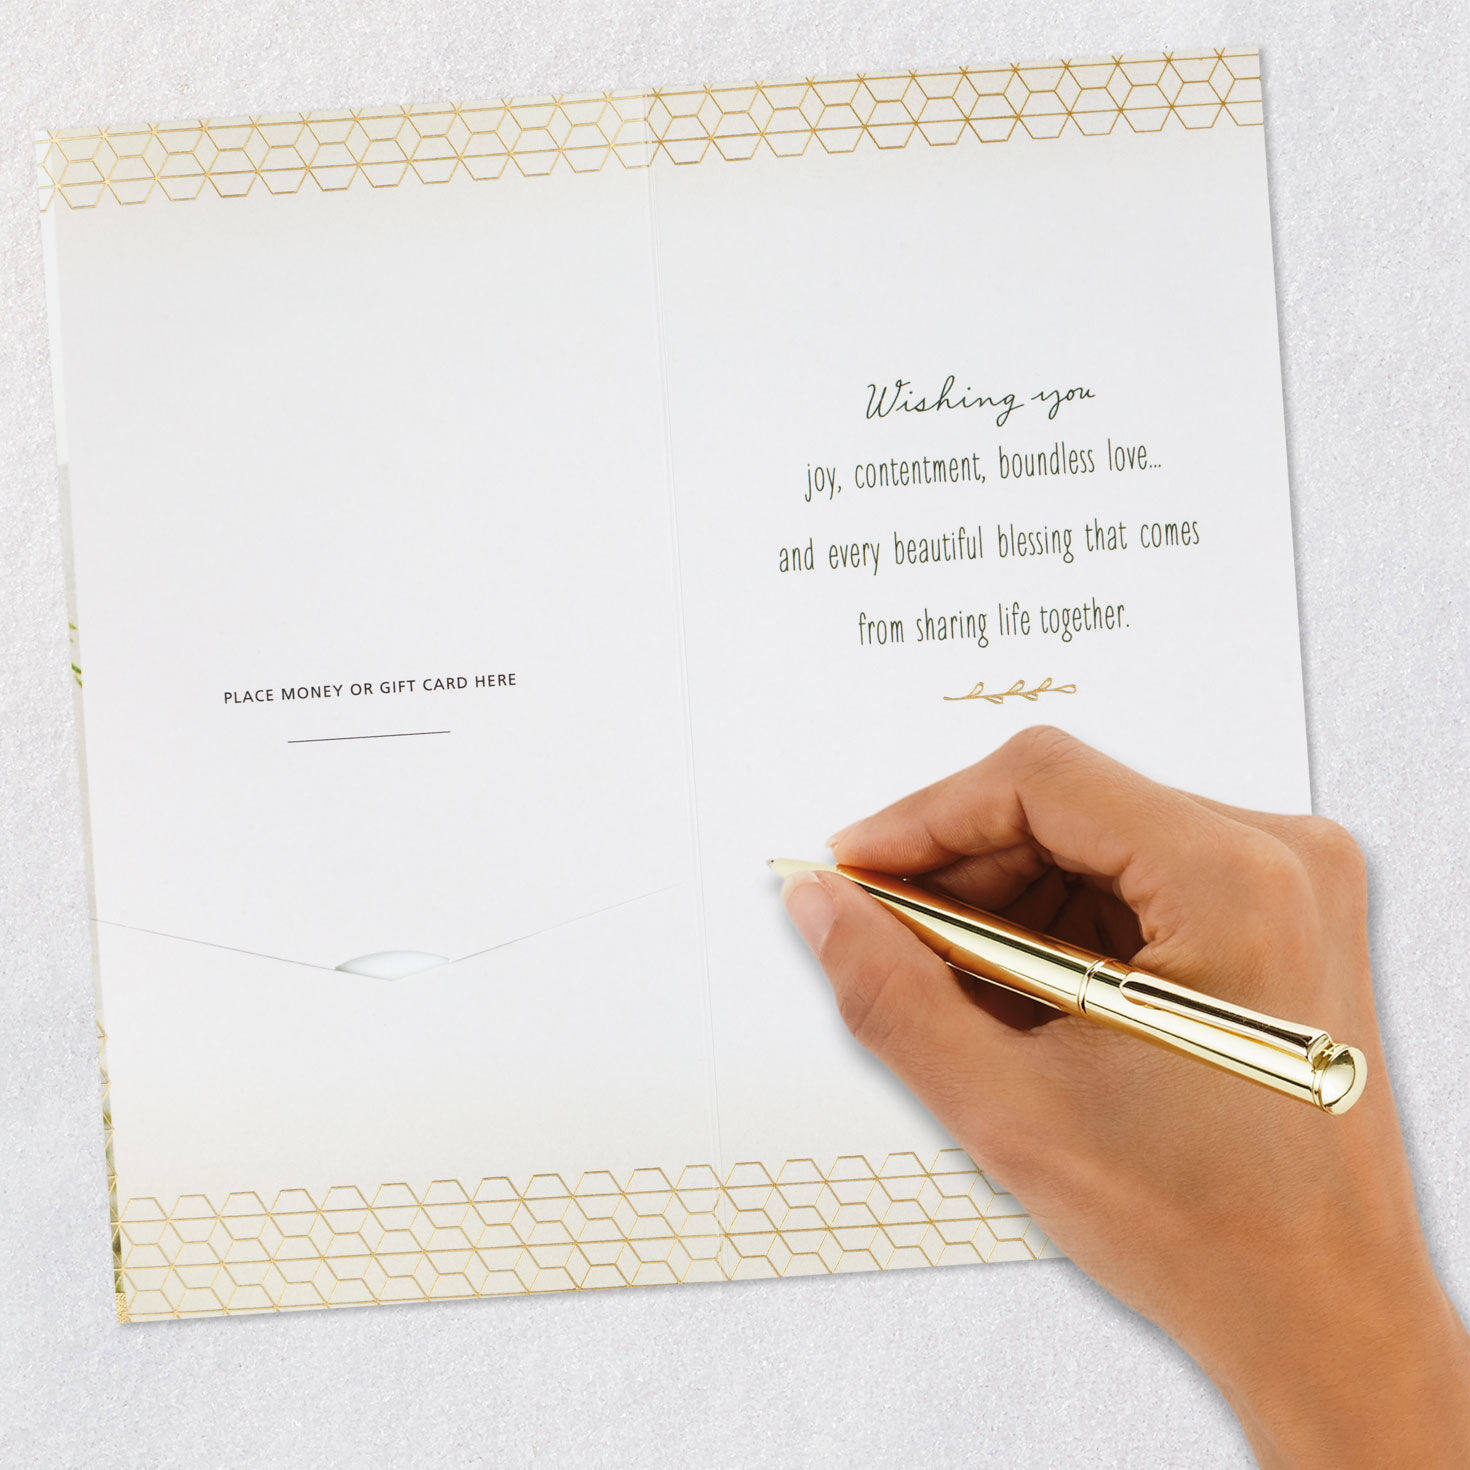 PLACE MONEY OR GIFT CARD HERE
Wishing you
joy, contentment, boundless love...
and every beautiful blessing that comes
from sharing life together.